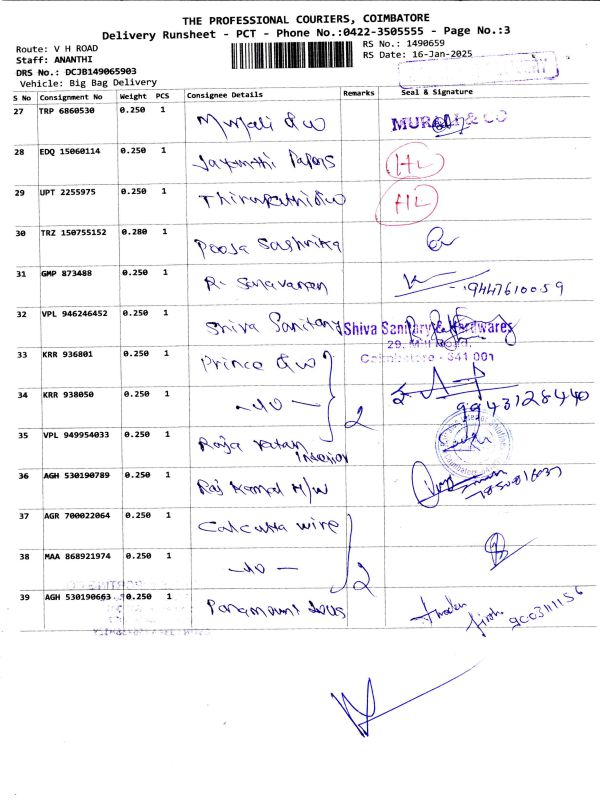 THE PROFESSIONAL COURIERS, COIMBATORE
Delivery Runsheet - PCT - Phone No.:0422-3505555 - Page No.:3
Route: V H ROAD
RS No.: 1490659
Staff: ANANTHI
RS Date: 16-Jan-2025
DRS No.: DCJB149065903
Vehicle: Big Bag Delivery
S No Consignment No Weight PCS Consignee Details Remarks Seal & Signature
27 TRP 6860530 0.250 1 Murali H/W MURALI & CO
28 EDQ 15060114 0.250 1 Jayanthi Papers HL
29 UPT 2255975 0.250 1 Thirupathi H/W HL
30 TRZ 150755152 0.280 1 Pooja Sashrika
31 GMP 873488 0.250 1 R. Saravanan 9447610059
32 VPL 946246452 0.250 1 Shiva Sanitary Shiva Sanitary & Hardwares
29, M.H Road,
Coimbatore - 641 001
33 KRR 936801 0.250 1 Prince H/W
34 KRR 938050 0.250 1 -do- 2 9943128440
35 VPL 949954033 0.250 1 Raja Ratan
Interior
36 AGH 530190789 0.250 1 Raj Kamal H/W
37 AGR 700022064 0.250 1 Calcutta wire
38 MAA 868921974 0.250 1 -do- 2
39 AGH 530190663 0.250 1 Paramount 9003111156